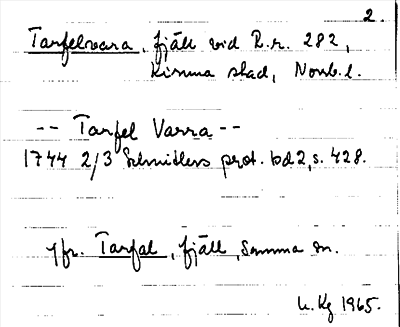 2.
Tarfelvara, fjäll vid R.r. 282,
Kiruna stad, Norrb.l.
-- Tarfel Varra --
1744 2/3 Schnitlers prot. bd 2, s. 428.
Jfr. Tarfal, fjäll, samma sn.
L. Kg 1965.